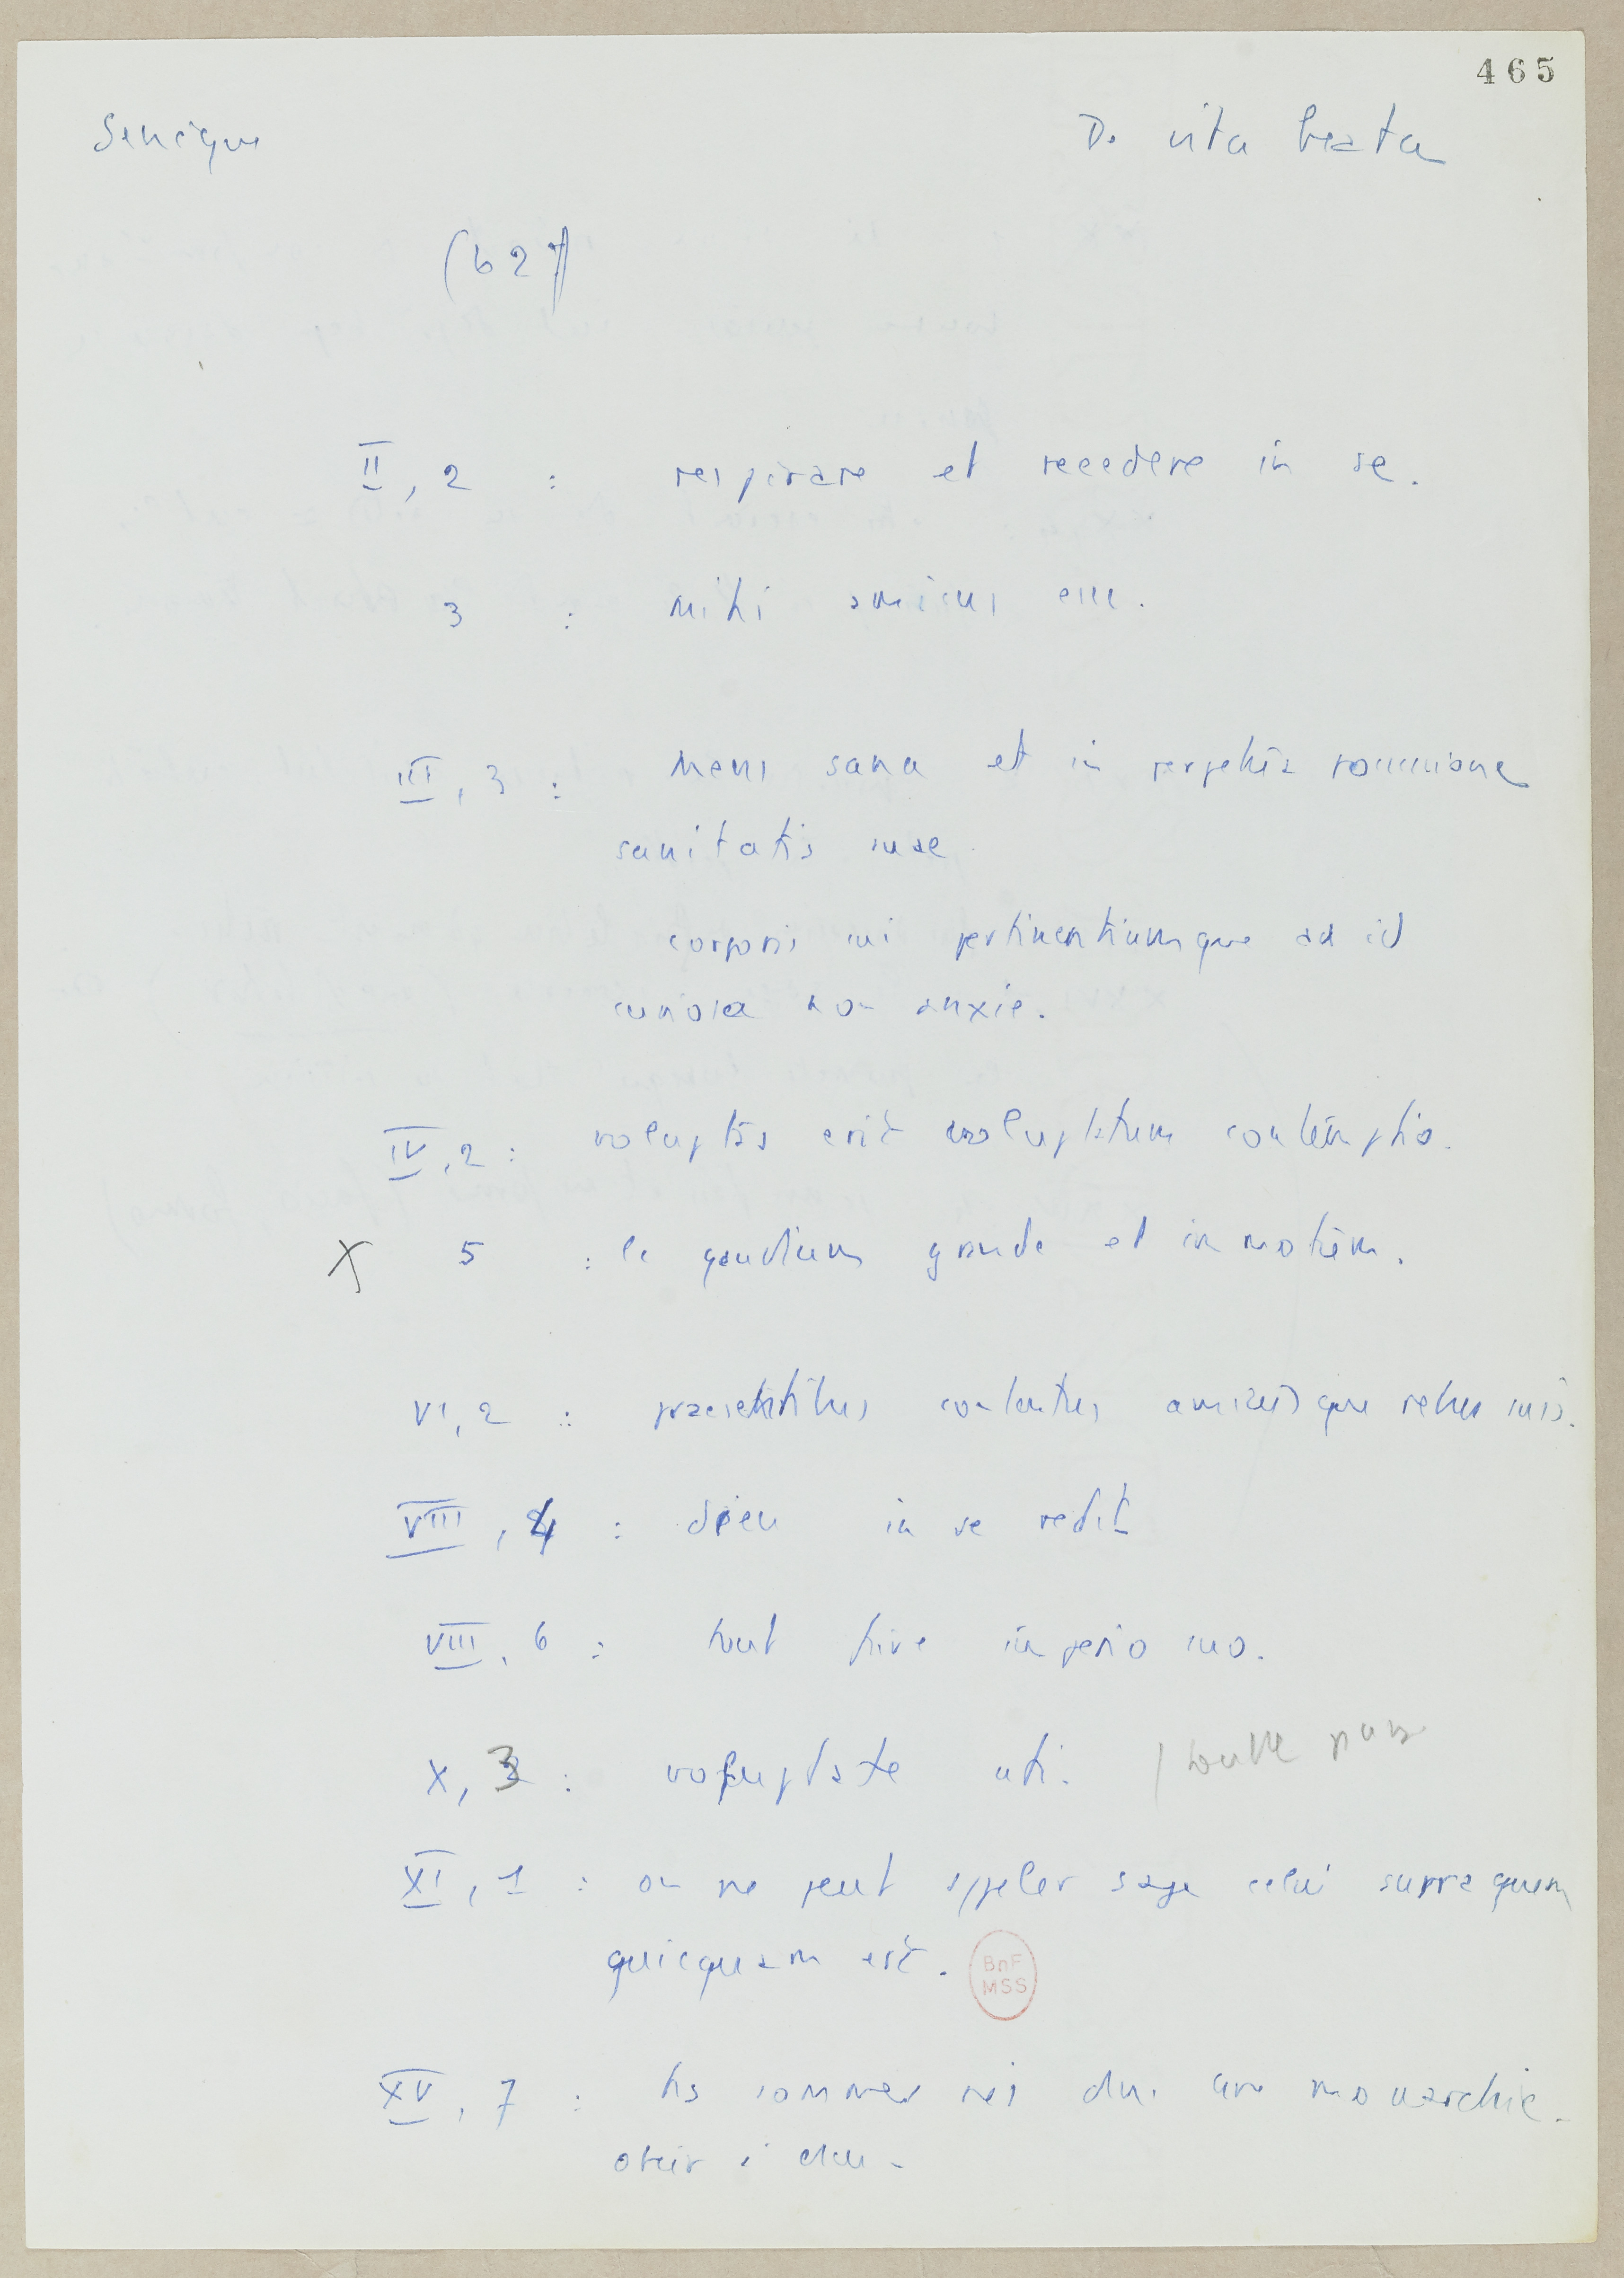 465
Sénèque De vita beata
(627)
II, 2 : respirare et recedere in se.
3 : mihi amicus esse.
III, 3 : mens sana et in perpetua possessione
sanitatis suae.
corporis sui pertinentiumque ad id
curiosa non anxie.
IV, 2 : voluptas erit voluptatum contemptio.
X 5 : le gaudium grande et inmotum.
VI, 2 : praesentibus contentus amicusque rebus suis.
VIII, 4 : dieu in se redit
VIII, 6 : tout faire imperio suo.
X, 3 : voluptate uti.
XI, 1 : on ne peut appeler sage celui supra quem
quicquam est.
XV, 7 : ns sommes nés dns une monarchie.
obéir à dieu.
BnF
MSS